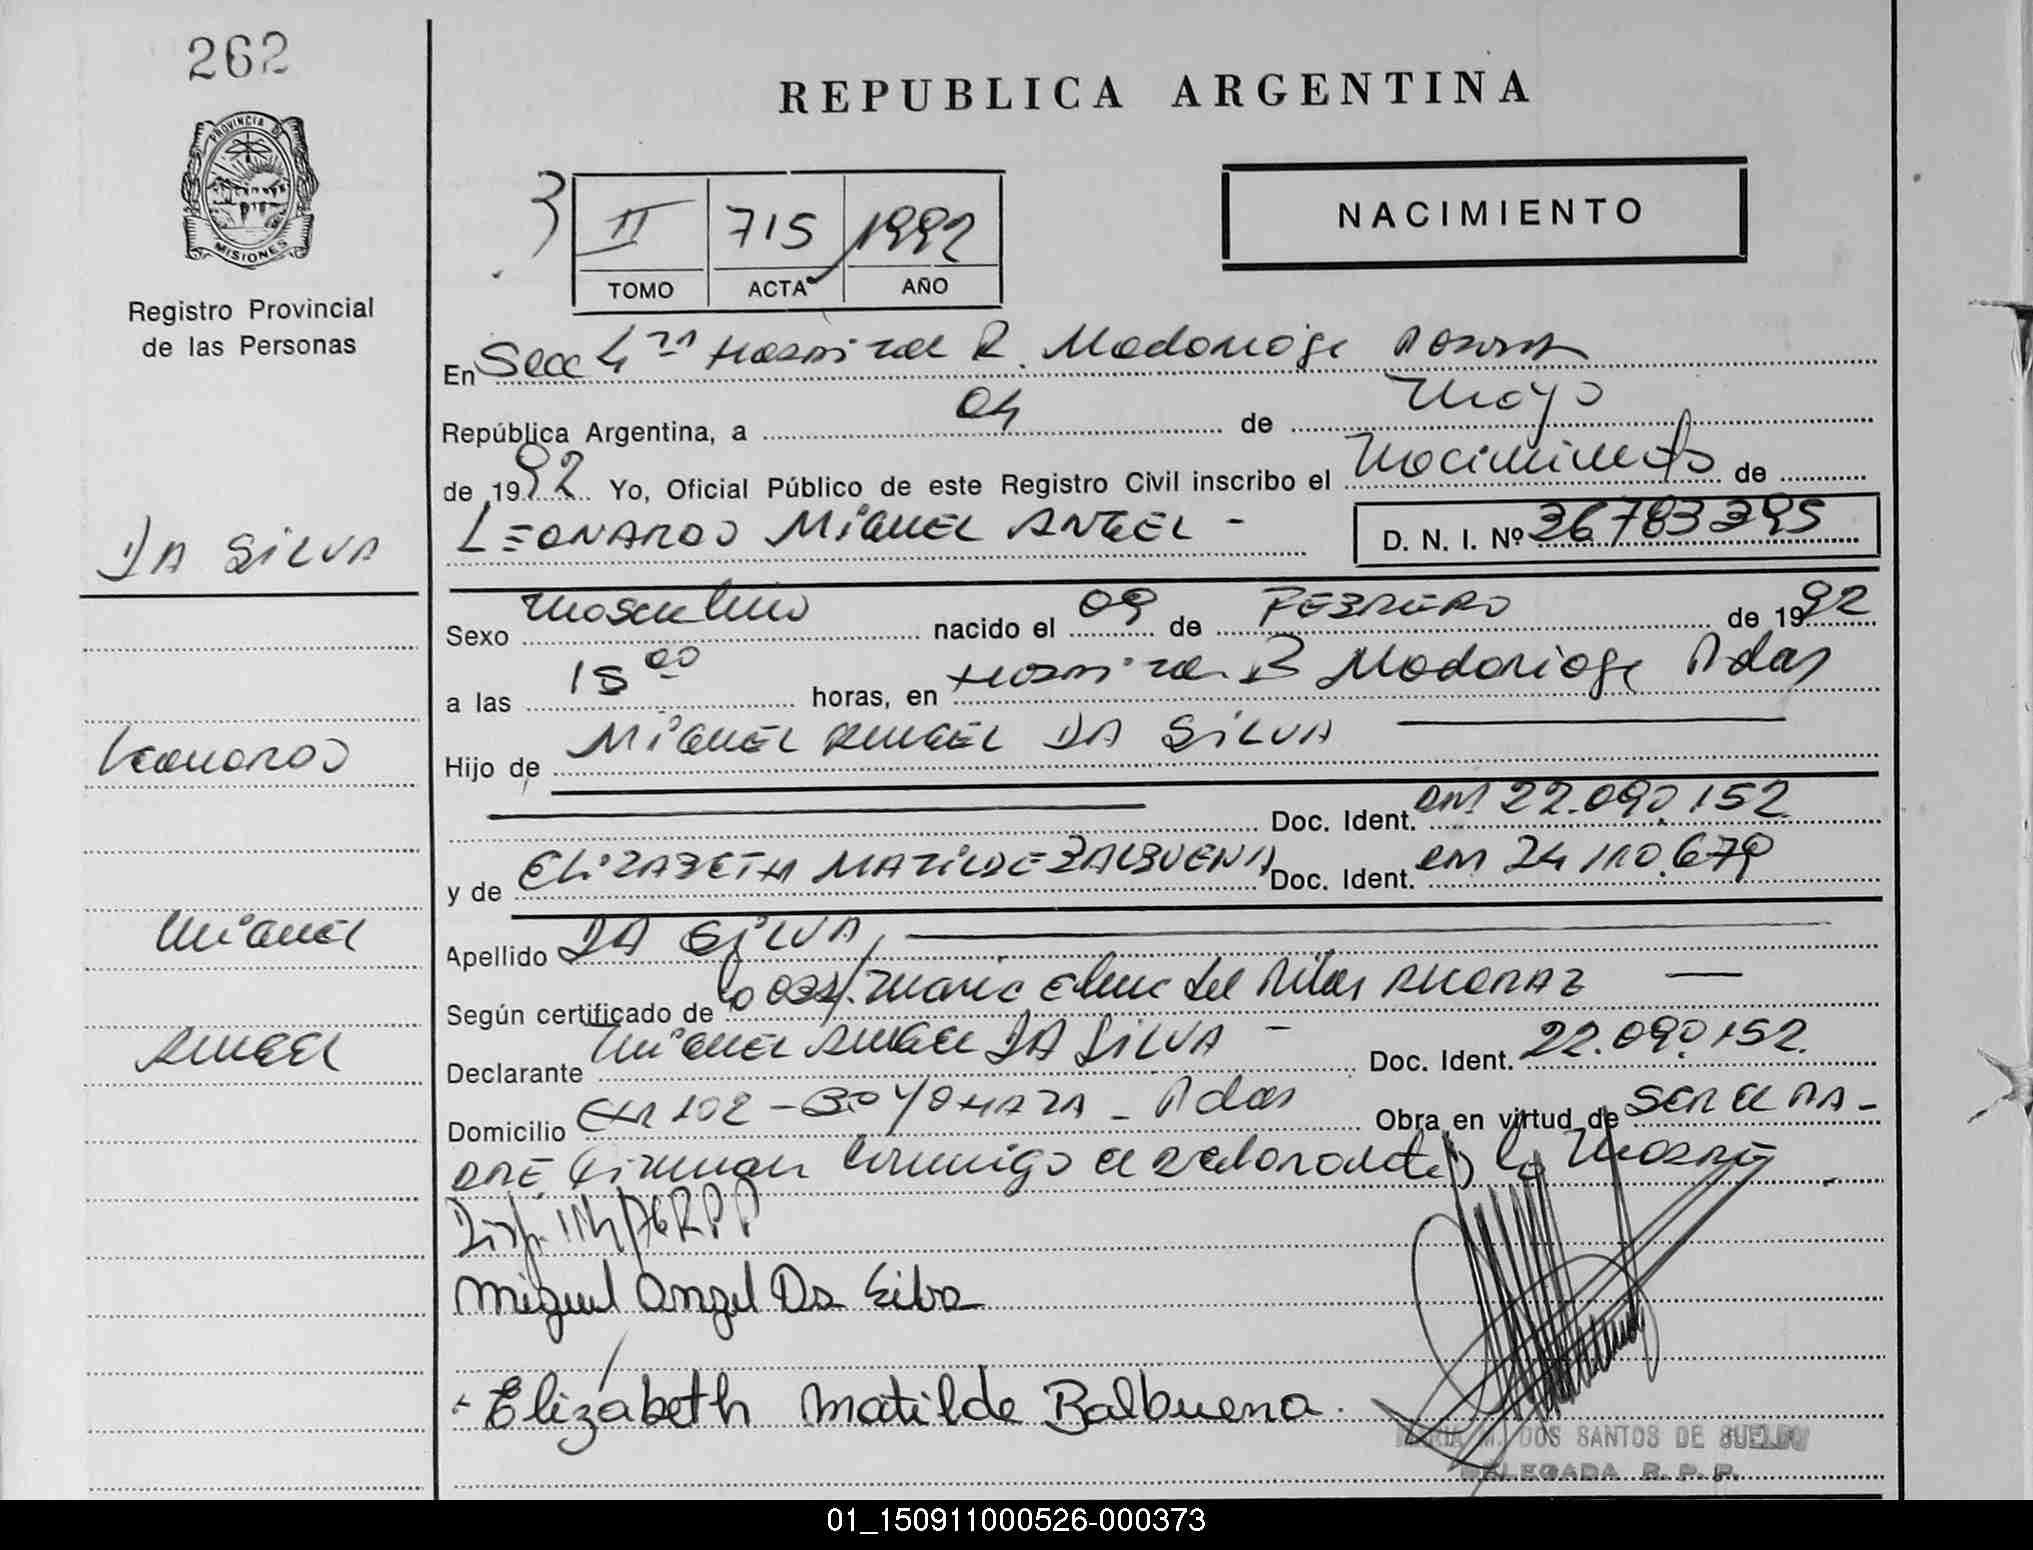 262
REPUBLICA ARGENTINA
PROVINCIA DE
MISIONES
Registro Provincial
de las Personas
3
II 715 1992
TOMO ACTA AÑO
NACIMIENTO
En Secc 4ta Hospital R. Madariaga
República Argentina, a 04 de Mayo
de 1992 Yo, Oficial Público de este Registro Civil inscribo el Nacimiento de
DA SILVA
LEONARDO MIGUEL ANGEL -
D. N. I. Nº 36783395
Sexo Masculino nacido el 09 de FEBRERO de 1992
a las 15 00 horas, en Hospital R Madariaga Pdas
Leonardo
Hijo de MIGUEL ANGEL DA SILVA
Doc. Ident. DNI 22.090.152
y de ELIZABETH MATILDE BALBUENA Doc. Ident. DNI 24.110.679
Miguel
Apellido DA SILVA,
Según certificado de la obst. Maria Elena del Pilar ALCARAZ
Angel
Declarante MIGUEL ANGEL DA SILVA - Doc. Ident. 22.090.152
Domicilio CH 102 - - Pdas Obra en virtud de SER EL PA-
DRE, Firman conmigo el declarante y la Madre
Disp. 114/76 RPP
Miguel Angel Da Silva
Elizabeth Matilde Balbuena.
MARIA M. DOS SANTOS DE SUELDO
DELEGADA R. P. P.
01_150911000526-000373